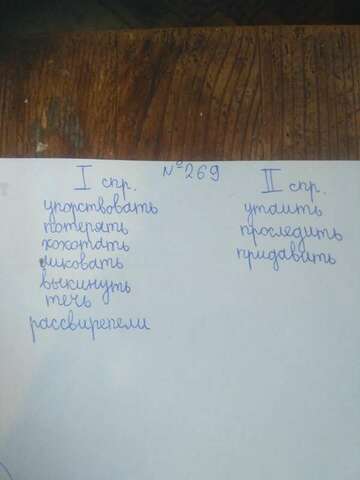 №269
I спр.
упорствовать
потерять
хохотать
ликовать
выкинуть
течь
рассвирепели
II спр.
утаить
проследить
придавить